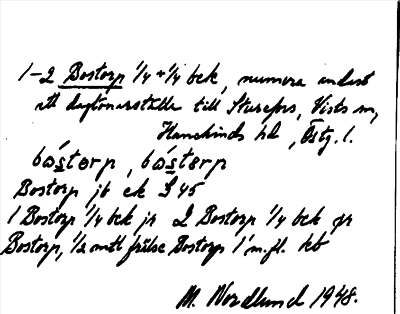 1-2 Bostorp 1/4 + 1/4 bek, numera endast
ett lägenhetsställe till Sturefors, Vists sn,
Hanekinds hd, Östg. l.
båstorp, båstørp
Bostorp jb ek § 45
1 Bostorp 1/4 bek jr 2 Bostorp 1/4 bek jr
Bostorp, 1/2 mtl frälse Bostorp 1 m.fl. kb
M. Nordlund 1948.